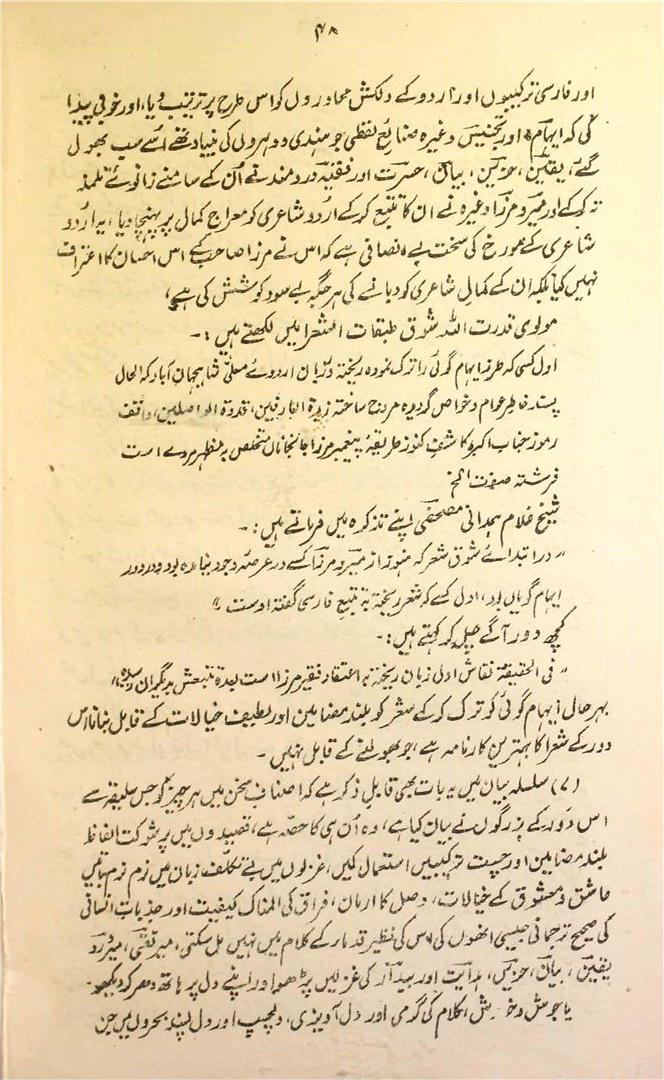 ۴۸
اور فارسی ترکیبوں اور اردو کے دلکش محاوروں کو اس طرح پر ترتیب دیا، اور خوبی پیدا
کی کہ ایہام اور تجنیس وغیرہ صنائع لفظی جو ہندی دوہروں کی بنیاد تھے اسے سب بھول
گئے، یقین، حزیں، بیان، حسرت اور فقیہ دردمند نے اُن کے سامنے زانوئے تلمذ
تہ کر کے اور میر و مرزا وغیرہ نے ان کا تتبع کر کے اردو شاعری کو معراج کمال پر پہنچا دیا، یہ اردو
شاعری کے مورخ کی سخت بے انصافی ہے کہ اس نے مرزا صاحب کے اس احسان کا اعتراف
نہیں کیا بلکہ ان کے کمال شاعری کو دبانے کی ہر جگہ بے سود کوشش کی ہے،
مولوی قدرت اللہ شوق طبقات الشعرا میں لکھتے ہیں :۔
اول کسی کہ طرز ایہام گوئی را ترک نمودہ ریختہ در زبان اردوے معلیٰ شاہجہاں آباد کہ الحال
پسند خاطر عوام و خواص گردیدہ مروج ساختہ زبدۃ العارفین، قدوۃ الواصلین، واقف
رموز جناب اکبر و کاشف کنوز طریقہ پیغمبر مرزا جانجاناں متخلص بہ مظہر مردے است
فرشتہ صفت الخ
شیخ غلام ہمدانی مصحفی اپنے تذکرہ میں فرماتے ہیں :۔
"در ابتدائے شوق شعر کہ ہنوز از میر و مرزا کسے در عرصہ وجود نیامدہ بود و دور دور
ایہام گویاں بود، اول کسے کہ شعر ریختہ بہ تتبع فارسی گفتہ اوست"
کچھ دور آگے چل کر کہتے ہیں :۔
"فی الحقیقۃ نقاش اول زبان ریختہ بہ اعتقاد فقیر مرزا است بعدۃ تتبعش بدیگراں رسیدہ"
بہرحال ایہام گوئی کو ترک کر کے شعر کو بلند مضامین اور لطیف خیالات کے قابل بنانا اس
دور کے شعرا کا بہترین کارنامہ ہے، جو بھولنے کے قابل نہیں۔
(۷) سلسلہ بیان میں یہ بات بھی قابل ذکر ہے کہ اصناف سخن میں ہر چیز کو جس سلیقہ سے
اس دور کے بزرگوں نے بیان کیا ہے، وہ اُن ہی کا حصہ ہے، قصیدوں میں پر شوکت الفاظ
بلند مضامین اور چست ترکیبیں استعمال کیں، غزلوں میں بے تکلف زبان میں نرم نرم باتیں
عاشق و معشوق کے خیالات، وصل کا ارمان، فراق کی المناک کیفیت اور جذبات انسانی
کی صحیح ترجمانی جیسی انھوں کی اس کی نظیر قدماء کے کلام میں نہیں مل سکتی، میر تقی، میر درد
یقین، بیان، حزیں، ہدایت اور بیدار کی غزلیں پڑھو اور اپنے دل پر ہاتھ دھر کر دیکھو۔
یا جوش و خروش، کلام کی گرمی اور دل آویزی، دلچسپ اور دل پسند بحروں میں جن